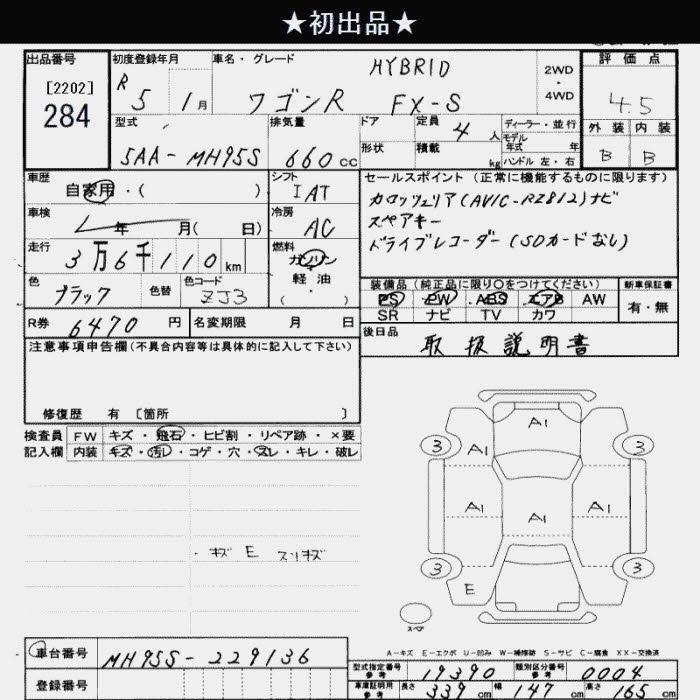 ★初出品★
出品番号
[2202]
284
初度登録年月
R 5 1月
車名・グレード
HYBRID
ワゴンR FX-S
2WD
・
4WD
評価点
4.5
外装 内装
B B
型式
5AA-MH95S
排気量
660cc
ドア
形状
定員 4人
積載 kg
ディーラー・並行
モデル
年式 年
ハンドル 左・右
車歴
自家用・( )
シフト
IAT
車検
年 月( 日)
冷房
AC
走行
3万6千110km
燃料
ガソリン
・
軽油
・
( )
色
ブラック
色替
色コード
ZJ3
R券 6470円
名変期限 月 日
セールスポイント (正常に機能するものに限ります)
カロッツェリア(AVIC-RZ812)ナビ
スペアキー
ドライブレコーダー(SDカードなし)
装備品 (純正品に限り○をつけてください)
PS PW ABS エアB AW
SR ナビ TV カワ
新車保証書
有・無
後日品
取扱説明書
注意事項申告欄(不具合内容等は具体的に記入して下さい)
修復歴 有 〔箇所 〕
検査員
記入欄
FW キズ・飛石・ヒビ割・リペア跡・×要
内装 キズ・汚レ・コゲ・穴・スレ・キレ・破レ
・キズ E スリキズ
A1
3 A1 3
A1 A1 A1
3 3
E
スペア
A-キズ E-エクボ U-凹み W-補修跡 S-サビ C-腐食 XX-交換済
車台番号
MH95S-229136
登録番号
型式指定番号
参考
19390
類別区分番号
参考
0004
車庫証明用
参考
長さ 339cm 幅 147cm 高さ 165cm